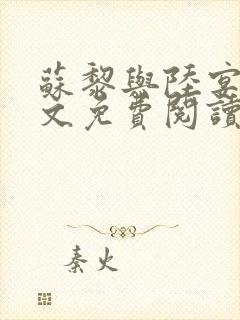 蘇黎與陸宴
文免費閱讀
秦火